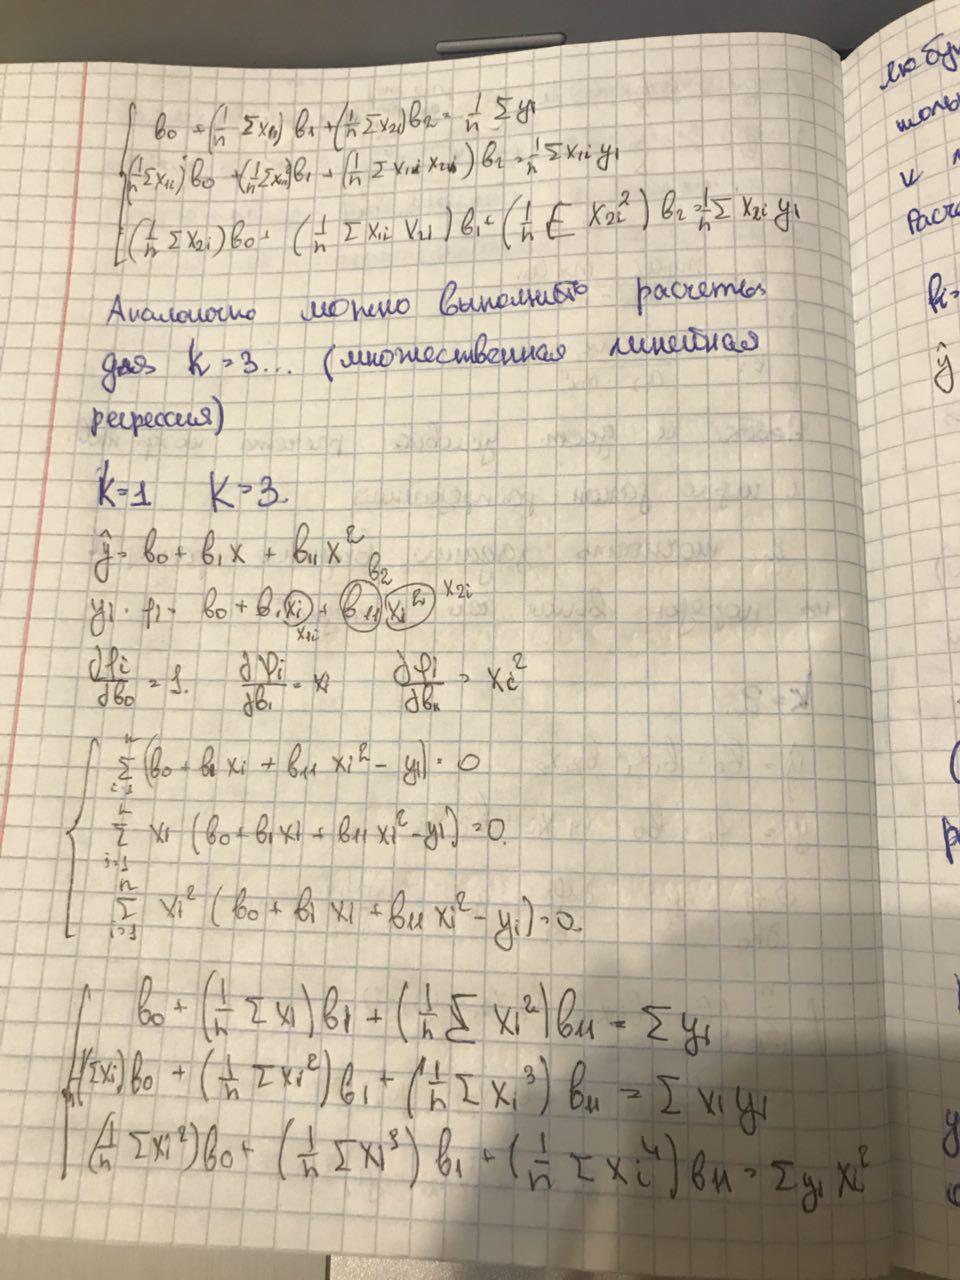 b₀ + (1/n Σx₁i) b₁ + (1/n Σx₂i) b₂ = 1/n Σyi
(1/n Σx₁i) b₀ + (1/n Σx₁i²) b₁ + (1/n Σx₁i x₂i) b₂ = 1/n Σx₁i yi
(1/n Σx₂i) b₀ + (1/n Σx₁i x₂i) b₁ + (1/n Σ x₂i²) b₂ = 1/n Σ x₂i yi
Аналогично можно выполнить расчеты
для k=3... (множественная линейная
регрессия)
k=1 K=3.
ŷ = b₀ + b₁x + b₁₁x²
b₂
yi = φi = b₀ + b₁xi + b₁₁xi² x₂i
x₁i
∂φi/∂b₀ = 1. ∂φi/∂b₁ = xi ∂φi/∂b₁₁ = xi²
Σ (i=1, n) (b₀ + b₁xi + b₁₁xi² - yi) = 0
Σ (i=1, n) xi (b₀ + b₁xi + b₁₁xi² - yi) = 0.
Σ (i=1, n) xi² (b₀ + b₁xi + b₁₁xi² - yi) = 0.
b₀ + (1/n Σxi) b₁ + (1/n Σ xi²) b₁₁ = Σyi
1/n (Σxi) b₀ + (1/n Σxi²) b₁ + (1/n Σxi³) b₁₁ = Σxi yi
(1/n Σxi²) b₀ + (1/n Σxi³) b₁ + (1/n Σxi⁴) b₁₁ = Σyi xi²